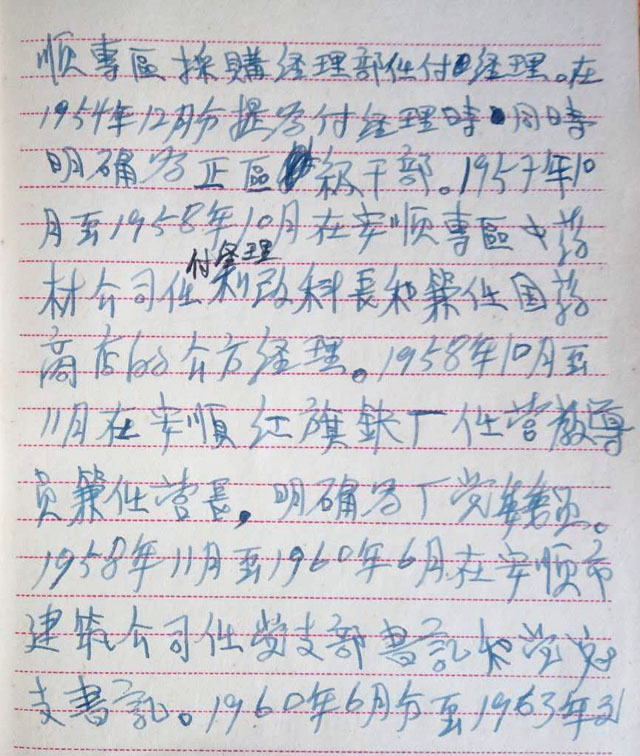 順專區採購経理部任付経理。在
1954年12月份提为付経理時同時
明确为正區級干部。1957年10
月至1958年10月在安順專區中药
付経理
材公司任利改科長和兼任国药
商店的公方経理。1958年10月至
11月在安順红旗鉄厂任营教导
员兼任营長,明确为厂党委。
1958年11月至1960年6月在安順市
建筑公司任党支部書記和党
支書記。1960年6月份至1963年3